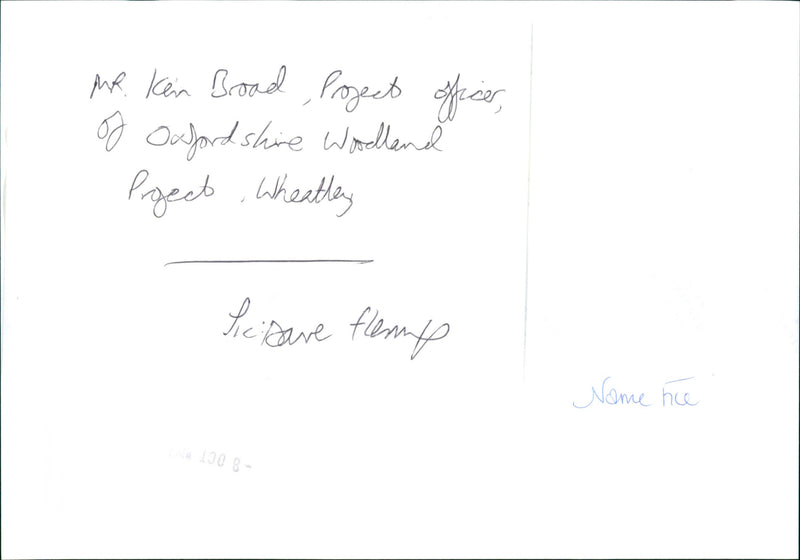 MR. Ken Broad, Project officer,
of Oxfordshire Woodland
Project, Wheatley
Pic: Dave Fleming
Name File
- 8 OCT